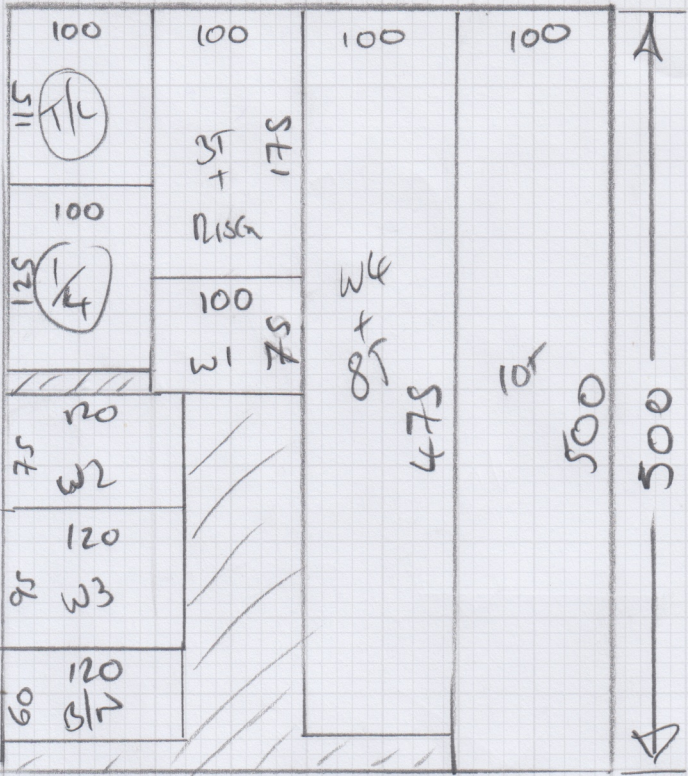 100
115
T/L
100
125
1/4
120
75
W2
120
95
W3
120
60
B/N
100
3T
+
RISER
175
100
W1
75
100
W4
+
8T
475
100
10T
500
500